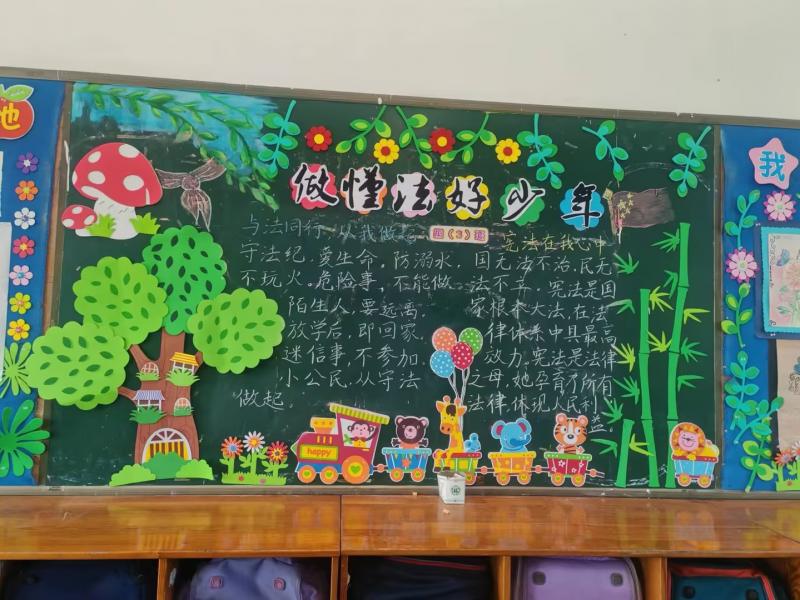 地
我
做懂法好少年
四（3）班
与法同行，从我做起
守法纪，爱生命，防溺水，
不玩火，危险事，不能做，
陌生人，要远离，
放学后，即回家，
迷信事，不参加，
小公民，从守法
做起。
宪法在我心中
国无法不治，民无
法不立，宪法是国
家根本大法，在法
律体系中具最高
效力，宪法是法律
之母，她孕育了所有
法律，体现人民利
益。
happy